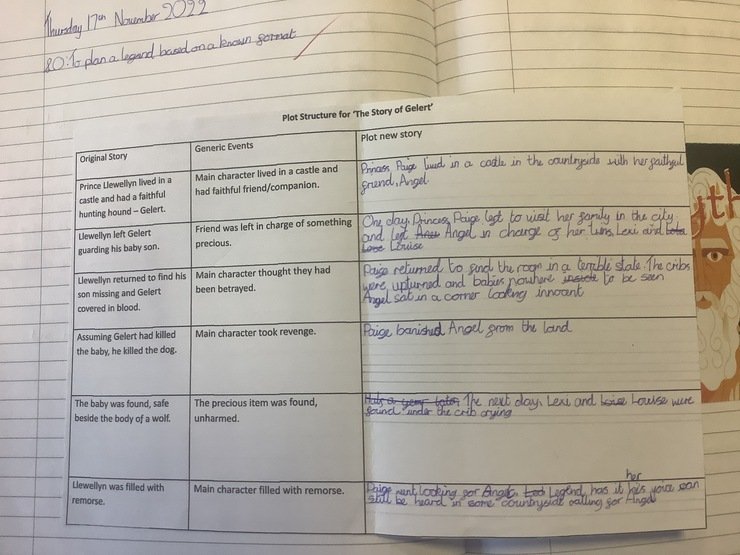 Thursday 17th November 2022
LO: To plan a legend based on a known format
Plot Structure for 'The Story of Gelert'
Original Story
Generic Events
Plot new story
Prince Llewellyn lived in a
castle and had a faithful
hunting hound – Gelert.
Main character lived in a castle and
had faithful friend/companion.
Princess Paige lived in a castle in the countryside with her faithful
friend, Angel.
Llewellyn left Gelert
guarding his baby son.
Friend was left in charge of something
precious.
One day, Princess Paige left to visit her family in the city
and left Angel in charge of her twins, Lexi and
Louise
Llewellyn returned to find his
son missing and Gelert
covered in blood.
Main character thought they had
been betrayed.
Paige returned to find the room in a terrible state. The cribs
were upturned and babies nowhere inside to be seen
Angel sat in a corner looking innocent
Assuming Gelert had killed
the baby, he killed the dog.
Main character took revenge.
Paige banished Angel from the land
The baby was found, safe
beside the body of a wolf.
The precious item was found,
unharmed.
Half a year later, The next day, Lexi and Louise were
found under the crib crying
Llewellyn was filled with
remorse.
Main character filled with remorse.
her
Paige went looking for Angel. Legend has it his voice can
still be heard in some countryside calling for Angel
yth